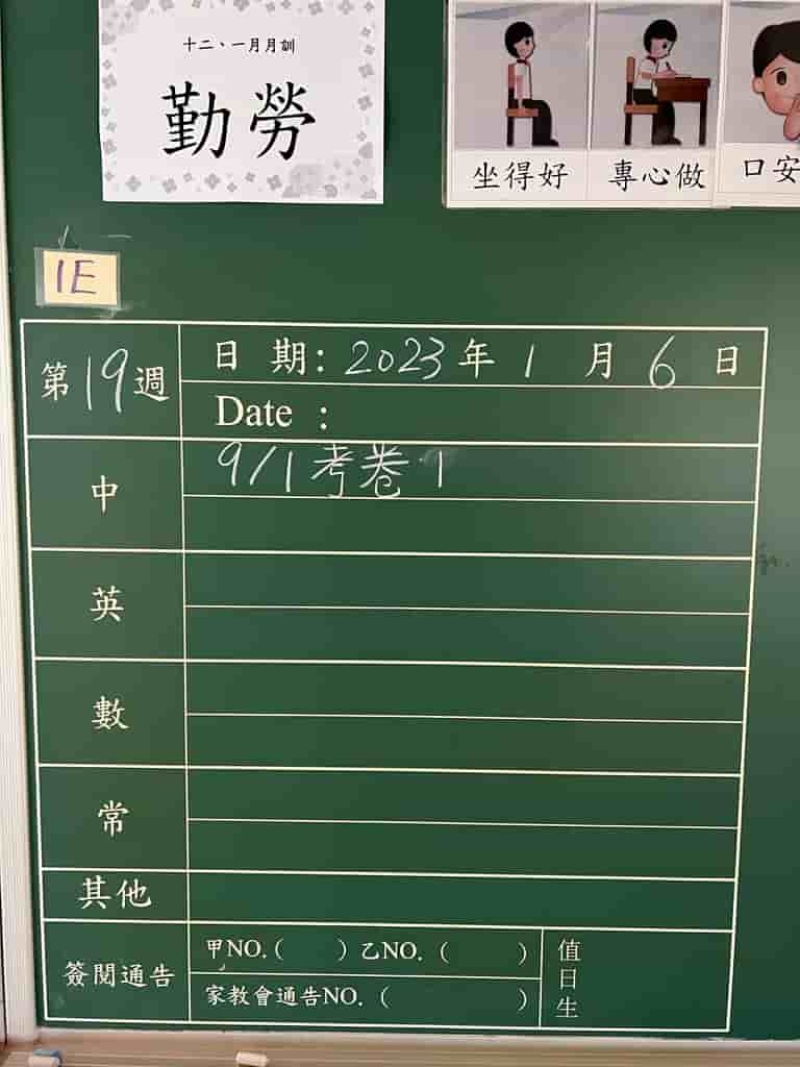 十二、一月月訓
勤勞
坐得好
專心做
口安
1E
第19週
日期：2023年1月6日
Date：
中
9/1考卷1
英
數
常
其他
簽閱通告
甲NO.（ ）乙NO.（ ）
家教會通告NO.（ ）
值日生